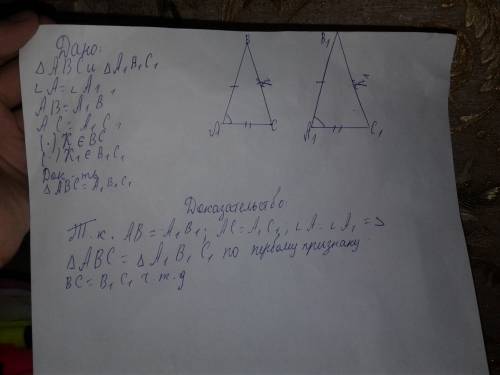 Дано:
△ABC и △A₁B₁C₁
∠A=∠A₁,
AB=A₁B
AC=A₁C₁
(·) K∈BC
(·) K₁∈B₁C₁
Док-ть
△ABC=A₁B₁C₁
B
A
C
B₁
A₁
C₁
Доказательство:
Т.к. AB=A₁B₁; AC=A₁C₁; ∠A=∠A₁ =>
△ABC=△A₁B₁C₁ по первому признаку
BC=B₁C₁ ч.т.д